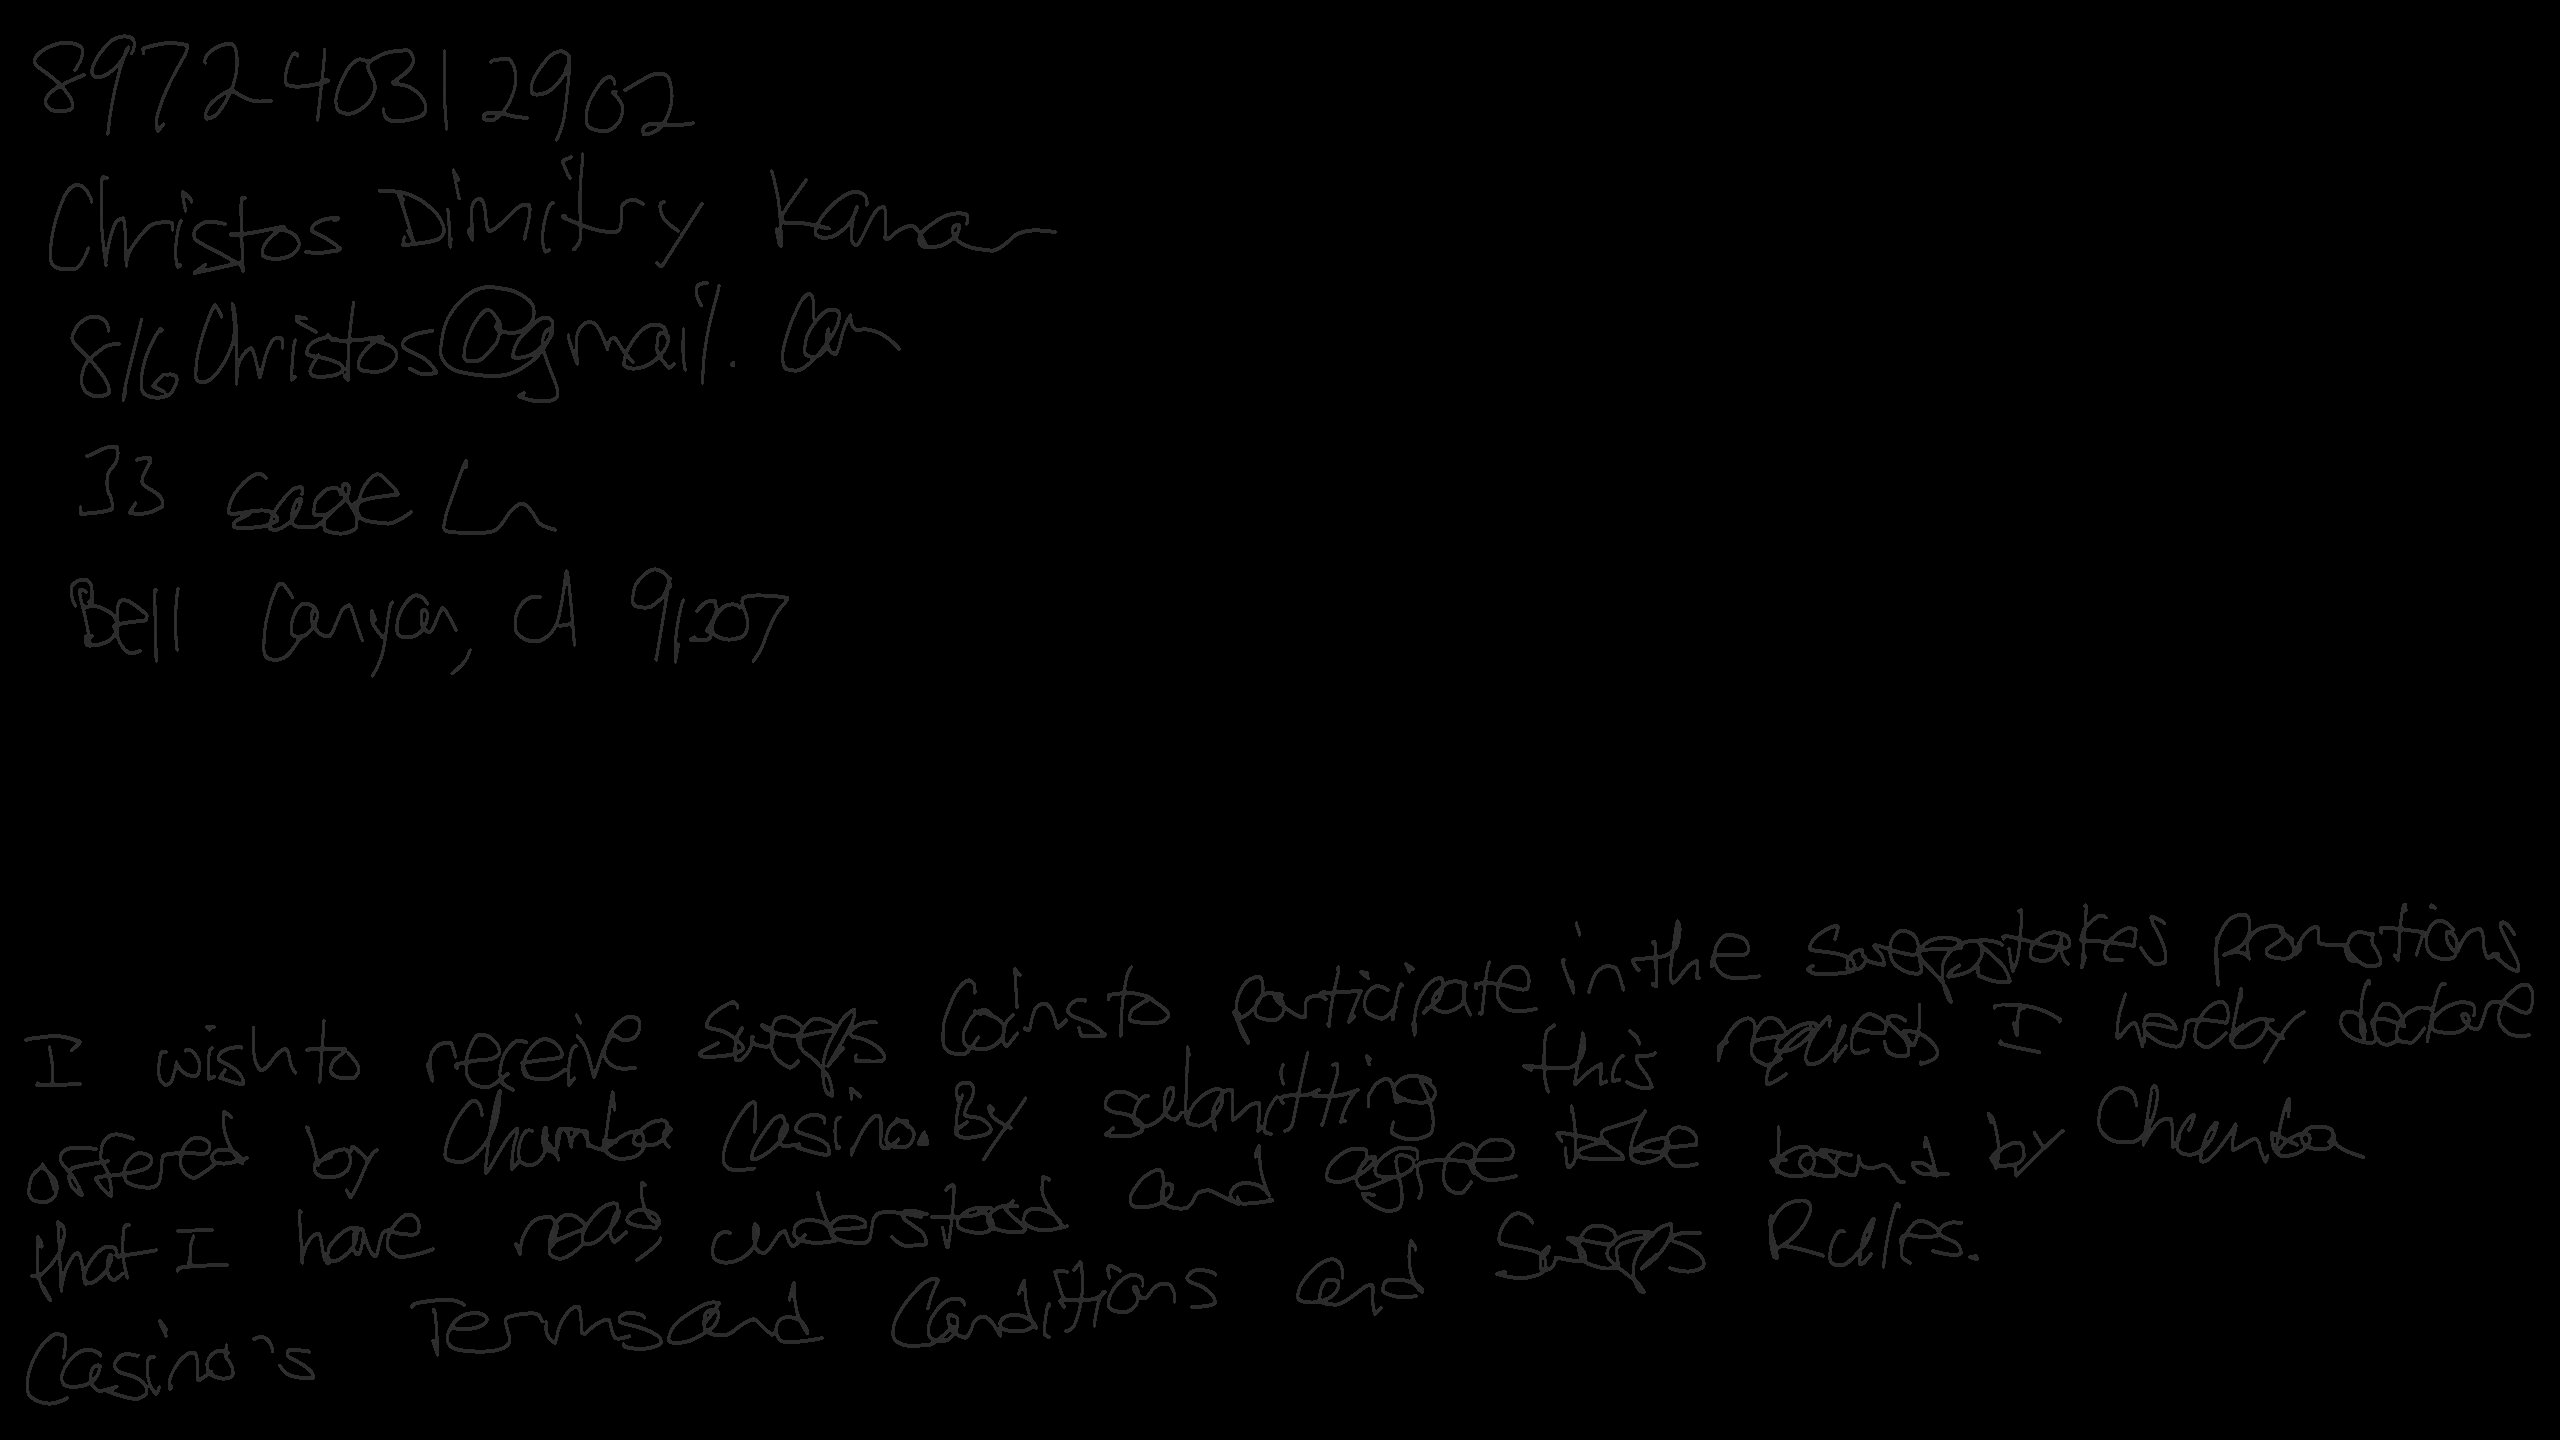 897240312902
Christos Dimitry Kamar
816Christos@gmail.com
33 Sage Ln
Bell Canyon, CA 91307
I wish to receive Sweeps Coins to participate in the sweepstakes promotions
offered by Chumba Casino. By submitting this request, I hereby declare
that I have read, understood and agree to be bound by Chumba
Casino's Terms and Conditions and Sweeps Rules.